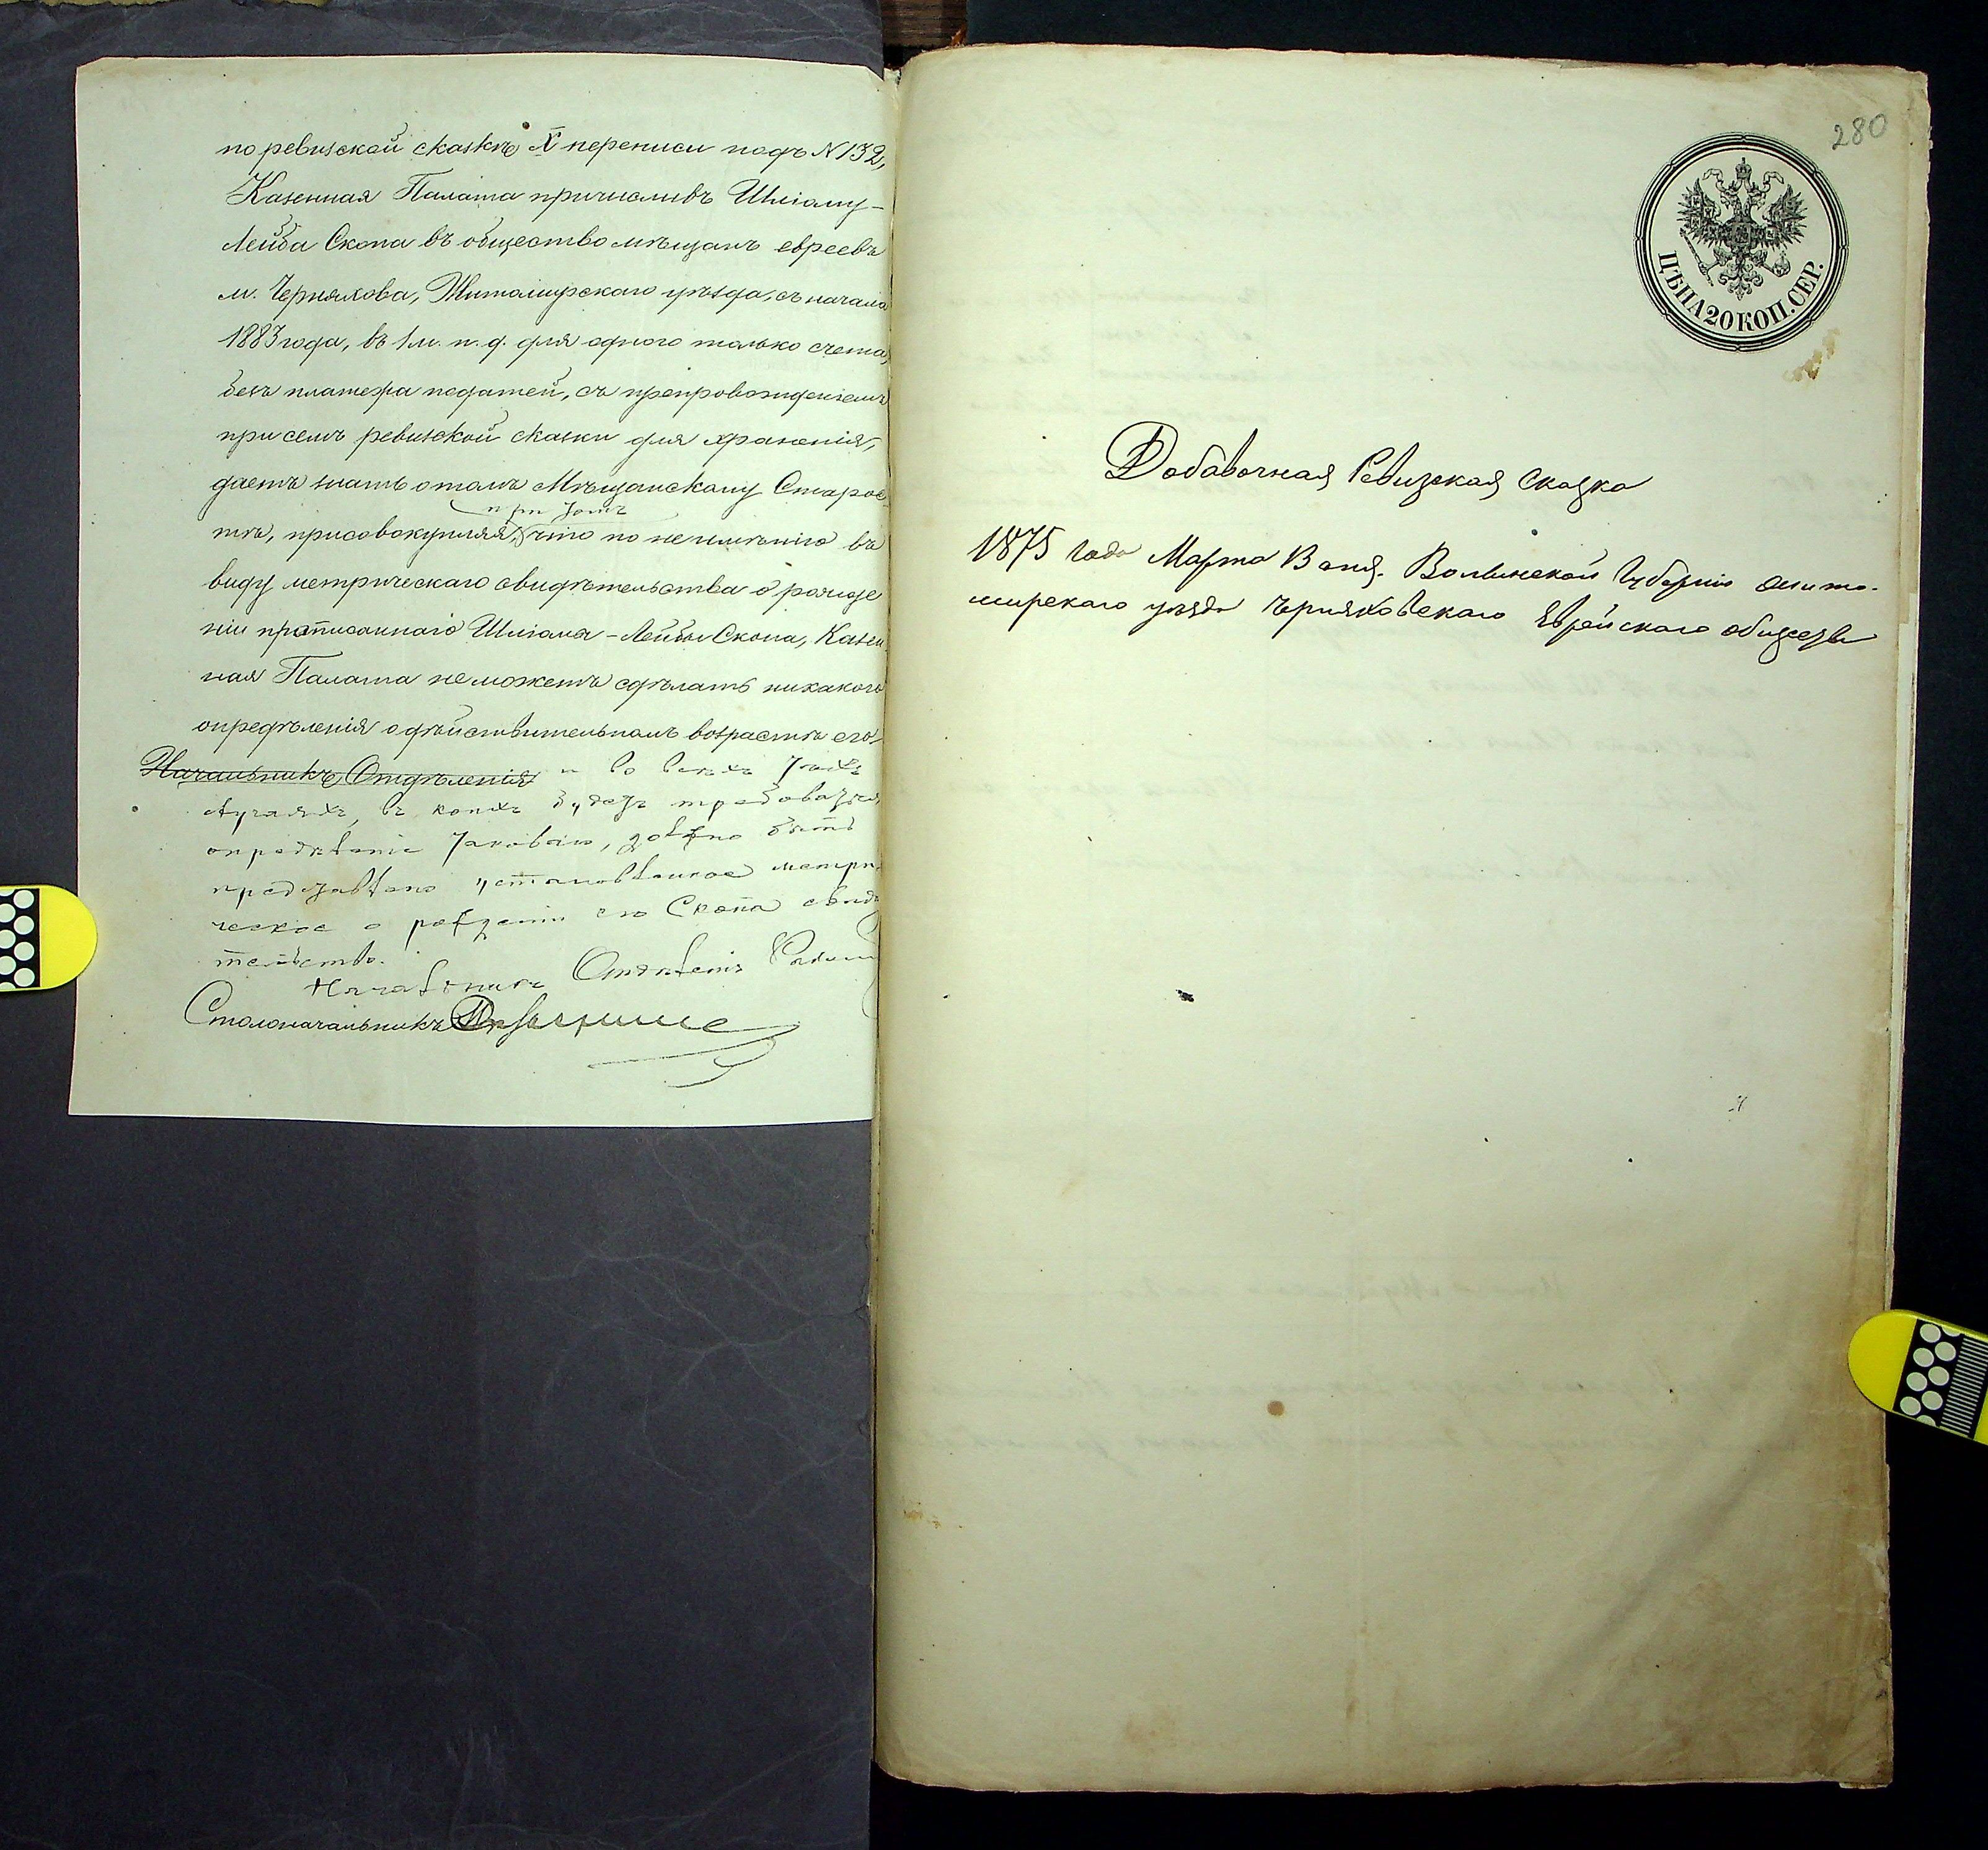 по ревизской сказкѣ X переписи подъ N 132,
Казенная Палата причисливъ Шліому-
Лейба Скопа въ общество мѣщанъ евреевъ
м. Черняхова, Житомирскаго уѣзда, съ начала
1883 года, въ 1 м. п. д. для одного только счета,
безъ платежа податей, съ препровожденіемъ
при семъ ревизской сказки для храненія,
даетъ знать о томъ Мѣщанскому Старос
при томъ
тѣ, присовокупляя, что по неимѣнію въ
виду метрическаго свидѣтельства о рожде
ніи прописаннаго Шліома-Лейбы Скопа, Казен
ная Палата не можетъ сдѣлать никакого
опредѣленія о дѣйствительномъ возрастѣ его,
Начальникъ Отдѣленія и во всѣхъ тѣхъ
случаяхъ, въ коихъ будетъ требоваться
опредѣленіе таковаго, должно быть
представлено установленное метри
ческое о рожденіи его Скопа свидѣ
тельство.
Начальникъ Отдѣленія
Столоначальникъ
280
ЦѢНА 20 КОП. СЕР.
Добавочная Ревизская сказка
1875 года Марта дня. Волынской Губерніи Жито-
мирскаго уѣзда Черняховскаго Еврейскаго общества